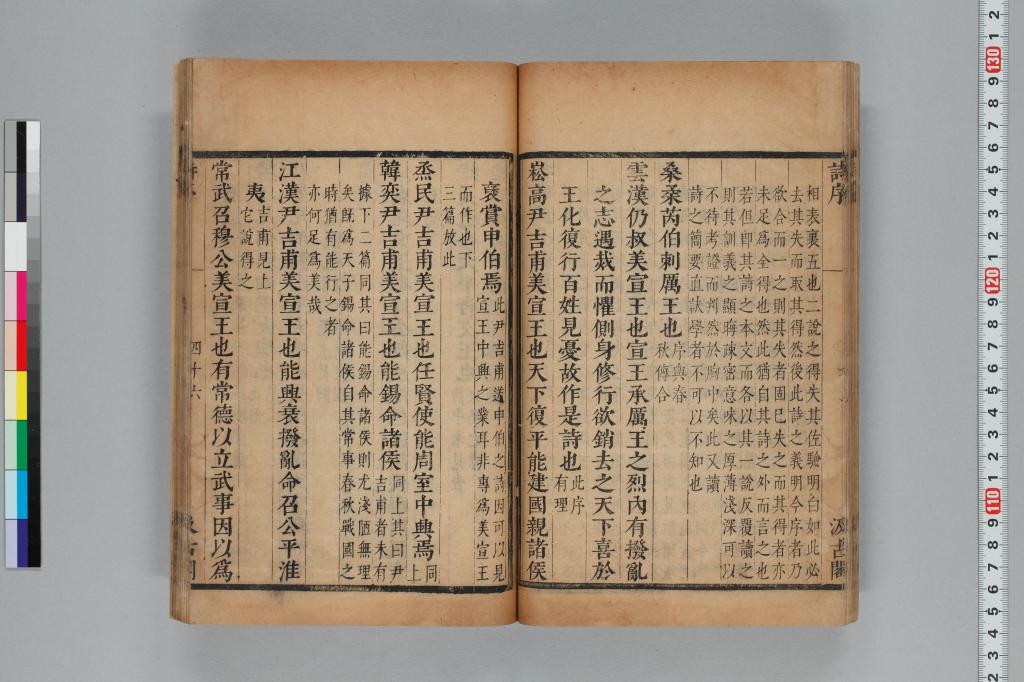 詩序
汲古閣
相表裏五也二說之得失其佐驗明白如此必
去其失而取其得然後此詩之義明今序者乃
欲合而一之則其失者固已失之而其得者亦
未足爲全得也然此猶自其詩之外而言之也
若但即其詩之本文而各以其一說反覆讀之
則其訓義之顯晦疎密意味之厚薄淺深可以
不待考證而判然於胸中矣此又讀
詩之簡要直訣學者不可以不知也
桑柔芮伯刺厲王也序與春
秋傳合
雲漢仍叔美宣王也宣王承厲王之烈內有撥亂
之志遇烖而懼側身修行欲銷去之天下喜於
王化復行百姓見憂故作是詩也此序
有理
崧高尹吉甫美宣王也天下復平能建國親諸侯
褒賞申伯焉此尹吉甫送申伯之詩因可以見
宣王中興之業耳非專爲美宣王
而作也下
三篇放此
烝民尹吉甫美宣王也任賢使能周室中興焉同
上
韓奕尹吉甫美宣王也能錫命諸侯同上其曰尹
吉甫者未有
據下二篇同其曰能錫命諸侯則尤淺陋無理
矣旣爲天子錫命諸侯自其常事春秋戰國之
時猶有能行之者
亦何足爲美哉
江漢尹吉甫美宣王也能興衰撥亂命召公平淮
夷吉甫見上
它說得之
常武召穆公美宣王也有常德以立武事因以爲
四十六